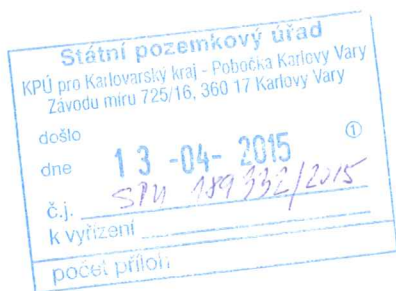 Státní pozemkový úřad
KPÚ pro Karlovarský kraj - Pobočka Karlovy Vary
Závodu míru 725/16, 360 17 Karlovy Vary
došlo
dne 13 -04- 2015 ①
č.j. SPU 189332/2015
k vyřízení
počet příloh